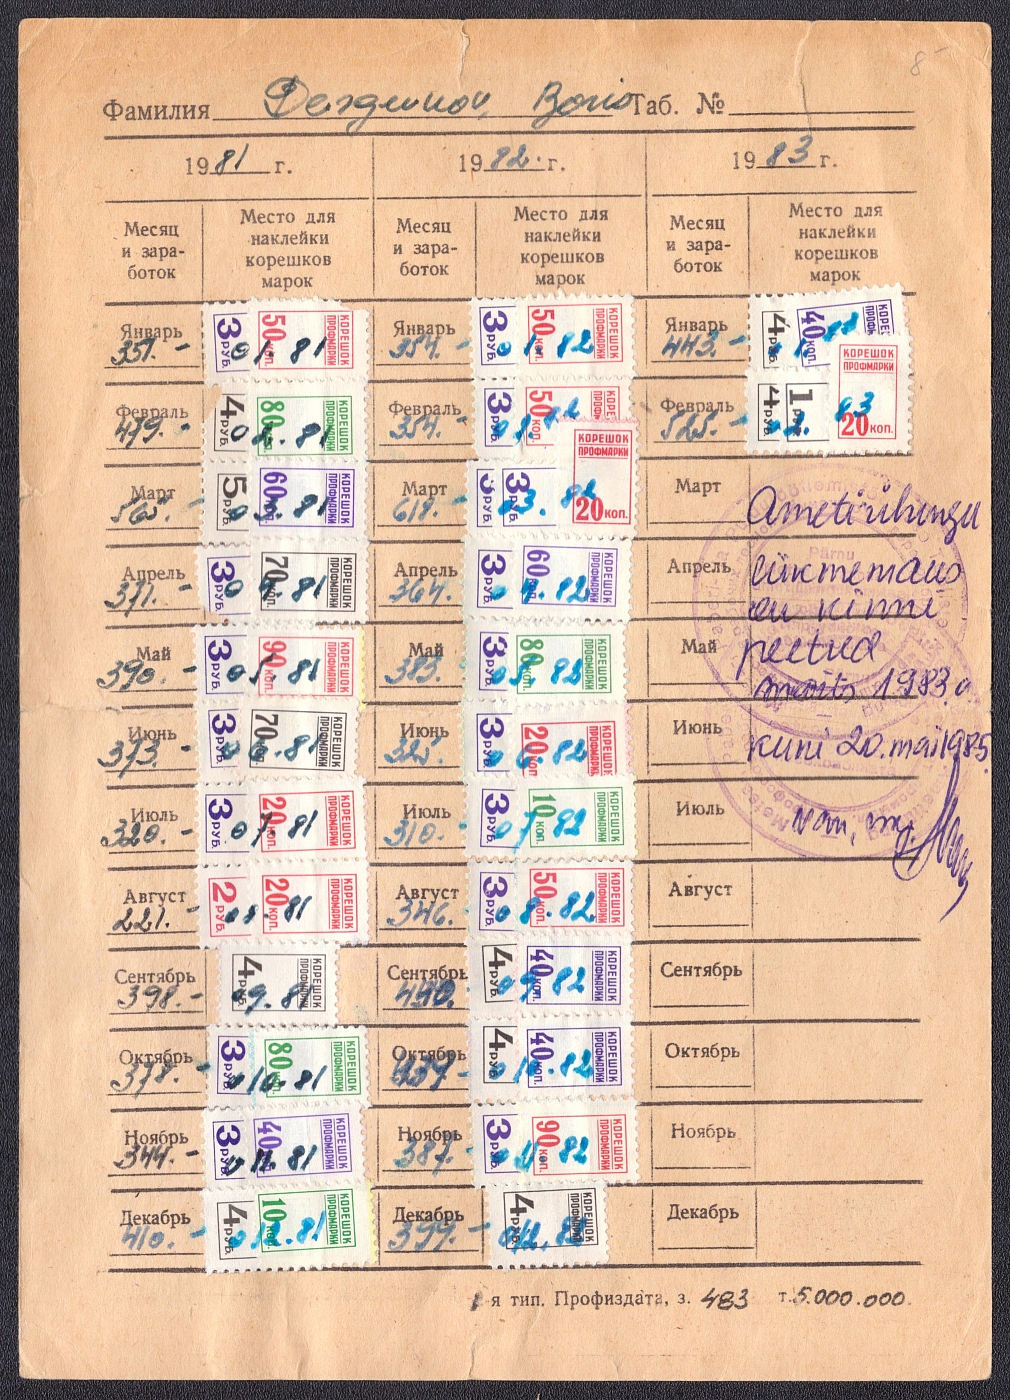 8-
Фамилия Таб. №
1981 г. 1982. г. 1983 г.
Месяц и зара- боток
Место для наклейки корешков марок
Месяц и зара- боток
Место для наклейки корешков марок
Месяц и зара- боток
Место для наклейки корешков марок
Январь 351.- 3 РУБ. 50 коп. КОРЕШОК ПРОФМАРКИ 01.81
Январь 354.- 3 РУБ. 50 коп. КОРЕШОК ПРОФМАРКИ 01.82
Январь 443.- 4 РУБ. 40 коп.
КОРЕШОК ПРОФМАРКИ 20 коп.
Февраль 479.- 4 80 КОРЕШОК ПРОФМАРКИ 02.81
Февраль 354.- 3 РУБ. 50 коп.
Февраль 525.- 4 РУБ. 1 02.83
Март 565.- 5 РУБ. 60 коп. КОРЕШОК ПРОФМАРКИ 03.81
Март 618.- 3 РУБ. 3 РУБ. 03.82
КОРЕШОК ПРОФМАРКИ 20 коп.
Март
Апрель 371.- 3 РУБ. 70 коп. КОРЕШОК ПРОФМАРКИ 04.81
Апрель 364.- 3 РУБ. 60 коп. КОРЕШОК ПРОФМАРКИ 04.82
Апрель
Май 390.- 3 РУБ. 90 коп. КОРЕШОК ПРОФМАРКИ 05.81
Май 383.- 3 РУБ. 80 коп. КОРЕШОК ПРОФМАРКИ 05.82
Май
Июнь 373.- 3 РУБ. 70 коп. КОРЕШОК ПРОФМАРКИ 06.81
Июнь 325.- 3 РУБ. 20 коп. КОРЕШОК ПРОФМАРКИ 06.82
Июнь
Июль 320.- 3 РУБ. 20 коп. КОРЕШОК ПРОФМАРКИ 07.81
Июль 310.- 3 РУБ. 10 коп. КОРЕШОК ПРОФМАРКИ 07.82
Июль
Август 221.- 2 РУБ. 20 коп. КОРЕШОК ПРОФМАРКИ 08.81
Август 346.- 3 РУБ. 50 коп. КОРЕШОК ПРОФМАРКИ 08.82
Август
Сентябрь 398.- 4 РУБ. КОРЕШОК ПРОФМАРКИ 09.81
Сентябрь 440.- 4 РУБ. 40 коп. КОРЕШОК ПРОФМАРКИ 09.82
Сентябрь
Октябрь 378.- 3 РУБ. 80 коп. КОРЕШОК ПРОФМАРКИ 10.81
Октябрь 437.- 4 РУБ. 40 коп. КОРЕШОК ПРОФМАРКИ 10.82
Октябрь
Ноябрь 344.- 3 РУБ. 40 коп. КОРЕШОК ПРОФМАРКИ 11.81
Ноябрь 387.- 3 РУБ. 90 коп. КОРЕШОК ПРОФМАРКИ 11.82
Ноябрь
Декабрь 410.- 4 РУБ. 10 коп. КОРЕШОК ПРОФМАРКИ 012.81
Декабрь 399.- 4 РУБ. КОРЕШОК ПРОФМАРКИ 012.82
Декабрь
Ametiühingu
liikmemaks
on kinni
peetud
märts 1983 a
kuni 20. mai 1985.
Pärnu
1-я тип. Профиздата, з. 483 т. 5.000.000.